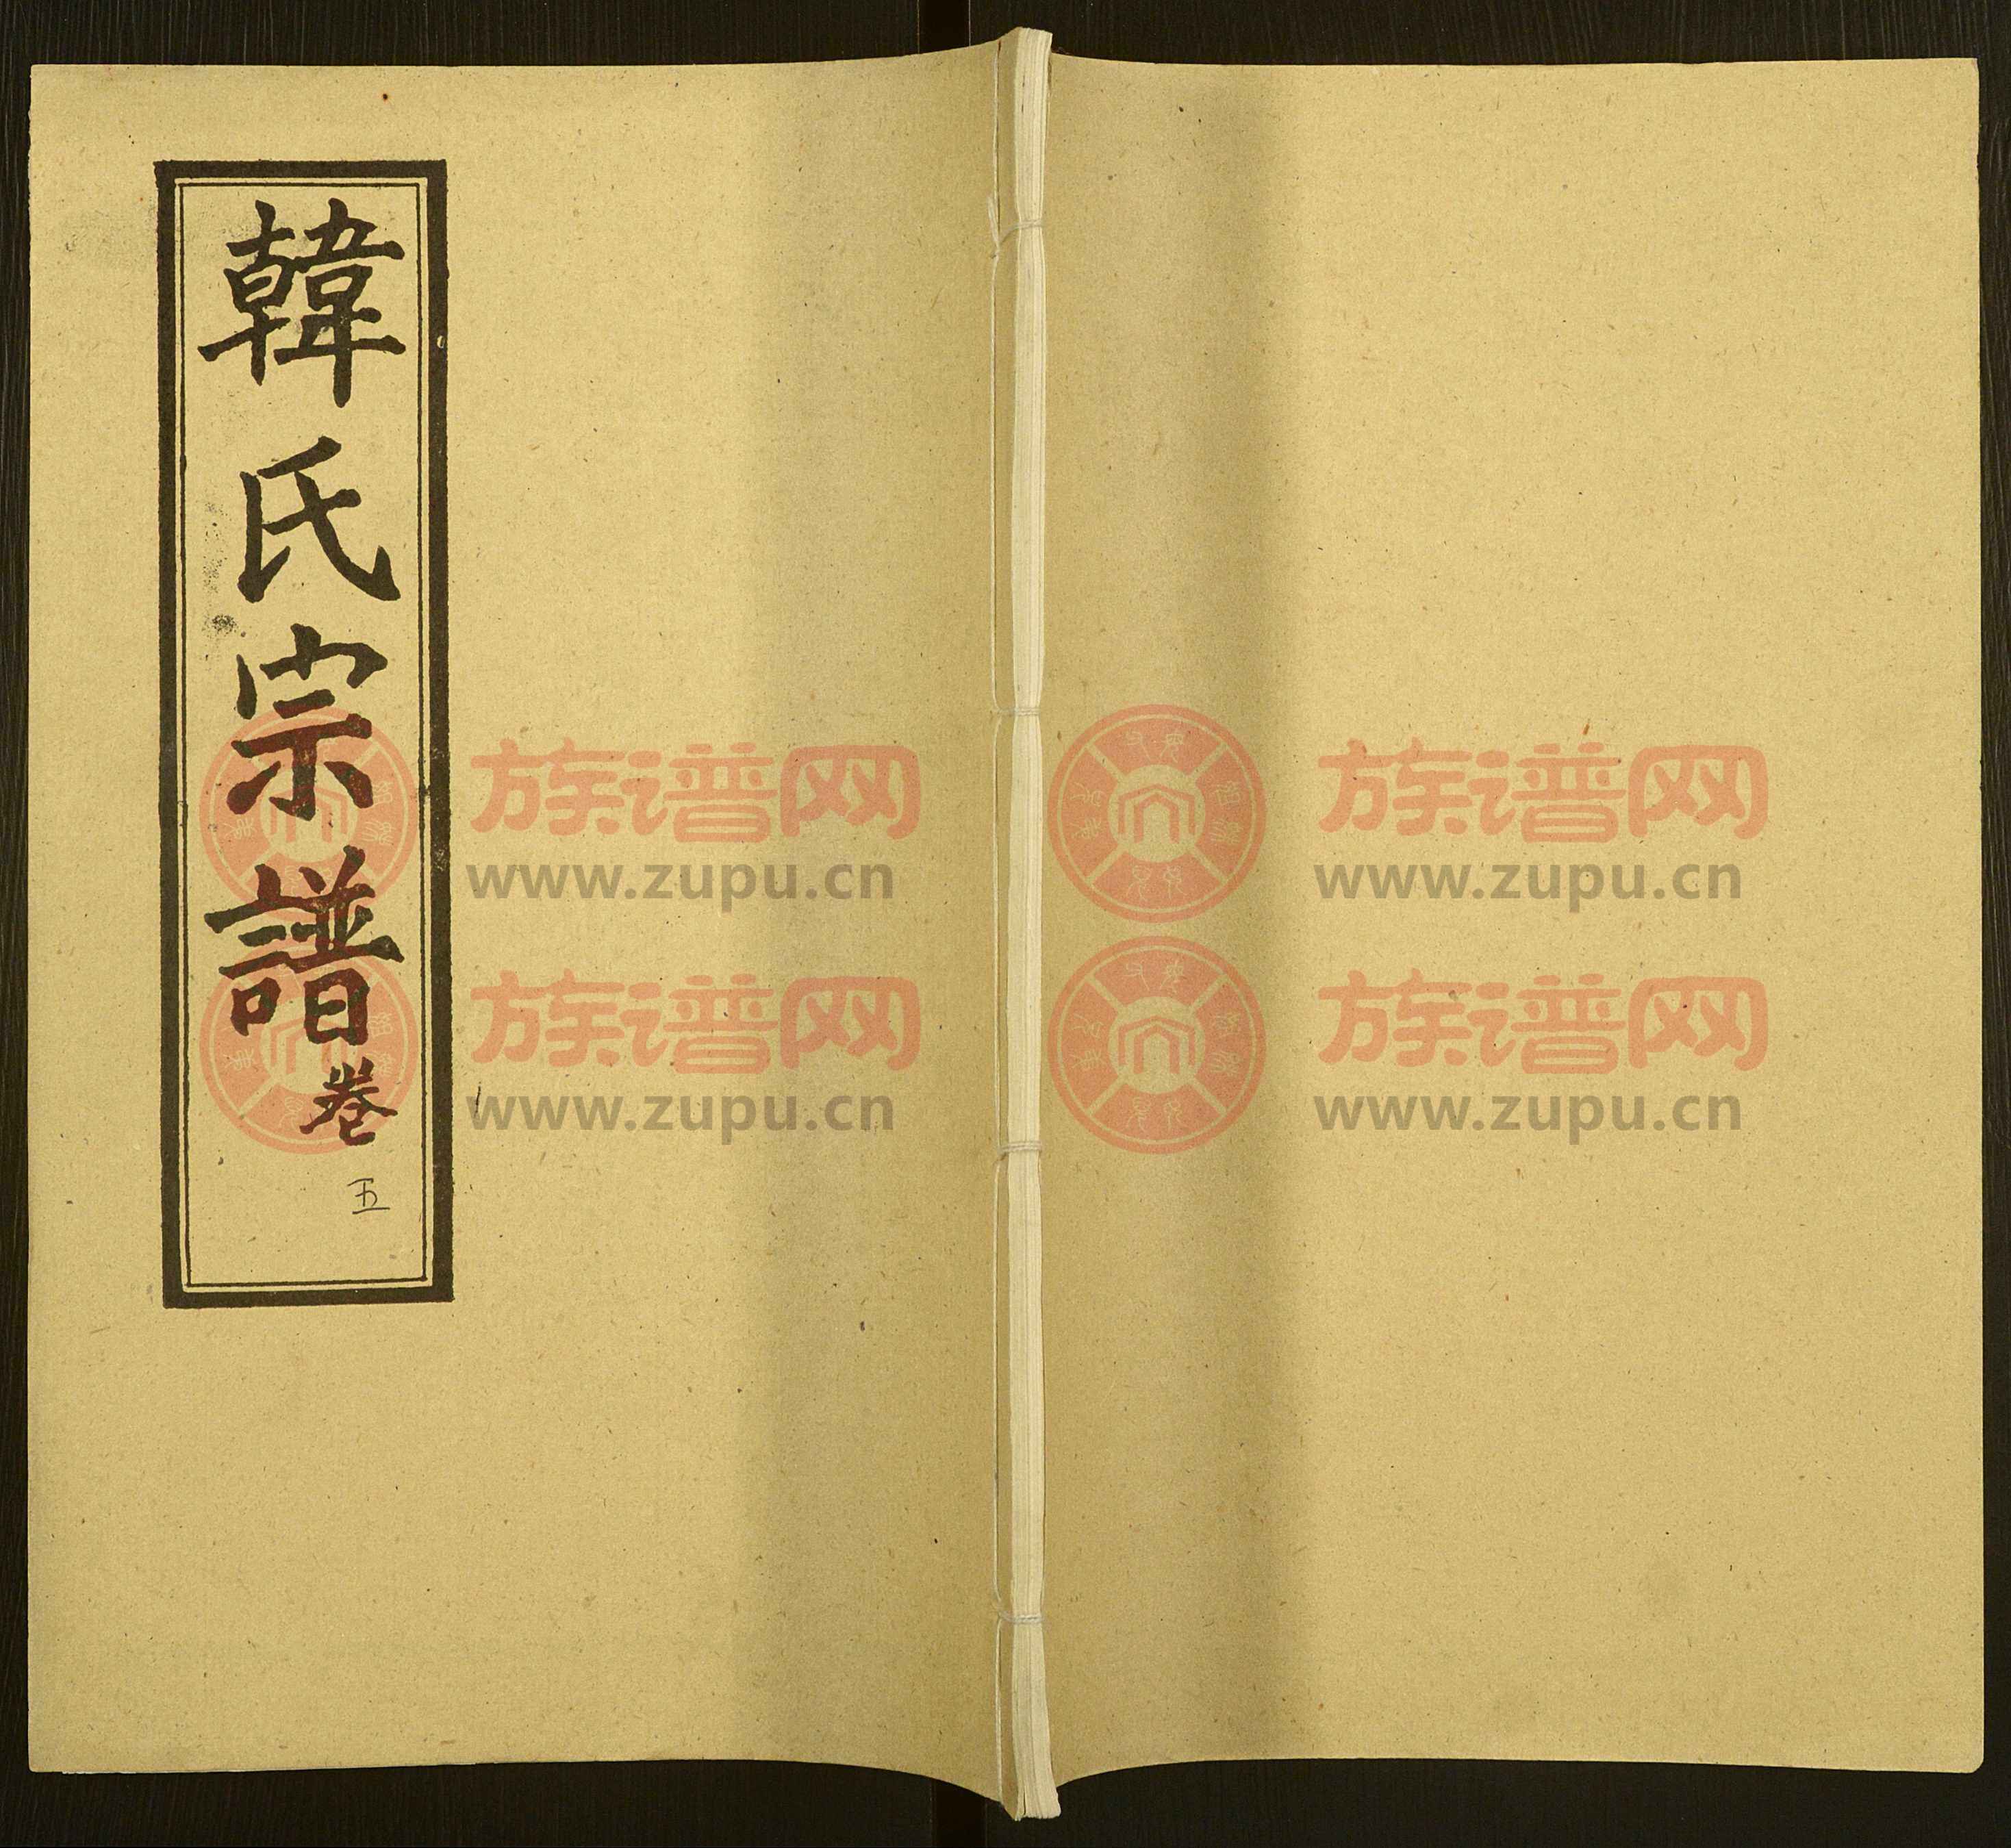 韓氏宗譜卷
五
族谱网
www.zupu.cn
族谱网
www.zupu.cn
族谱网
www.zupu.cn
族谱网
www.zupu.cn